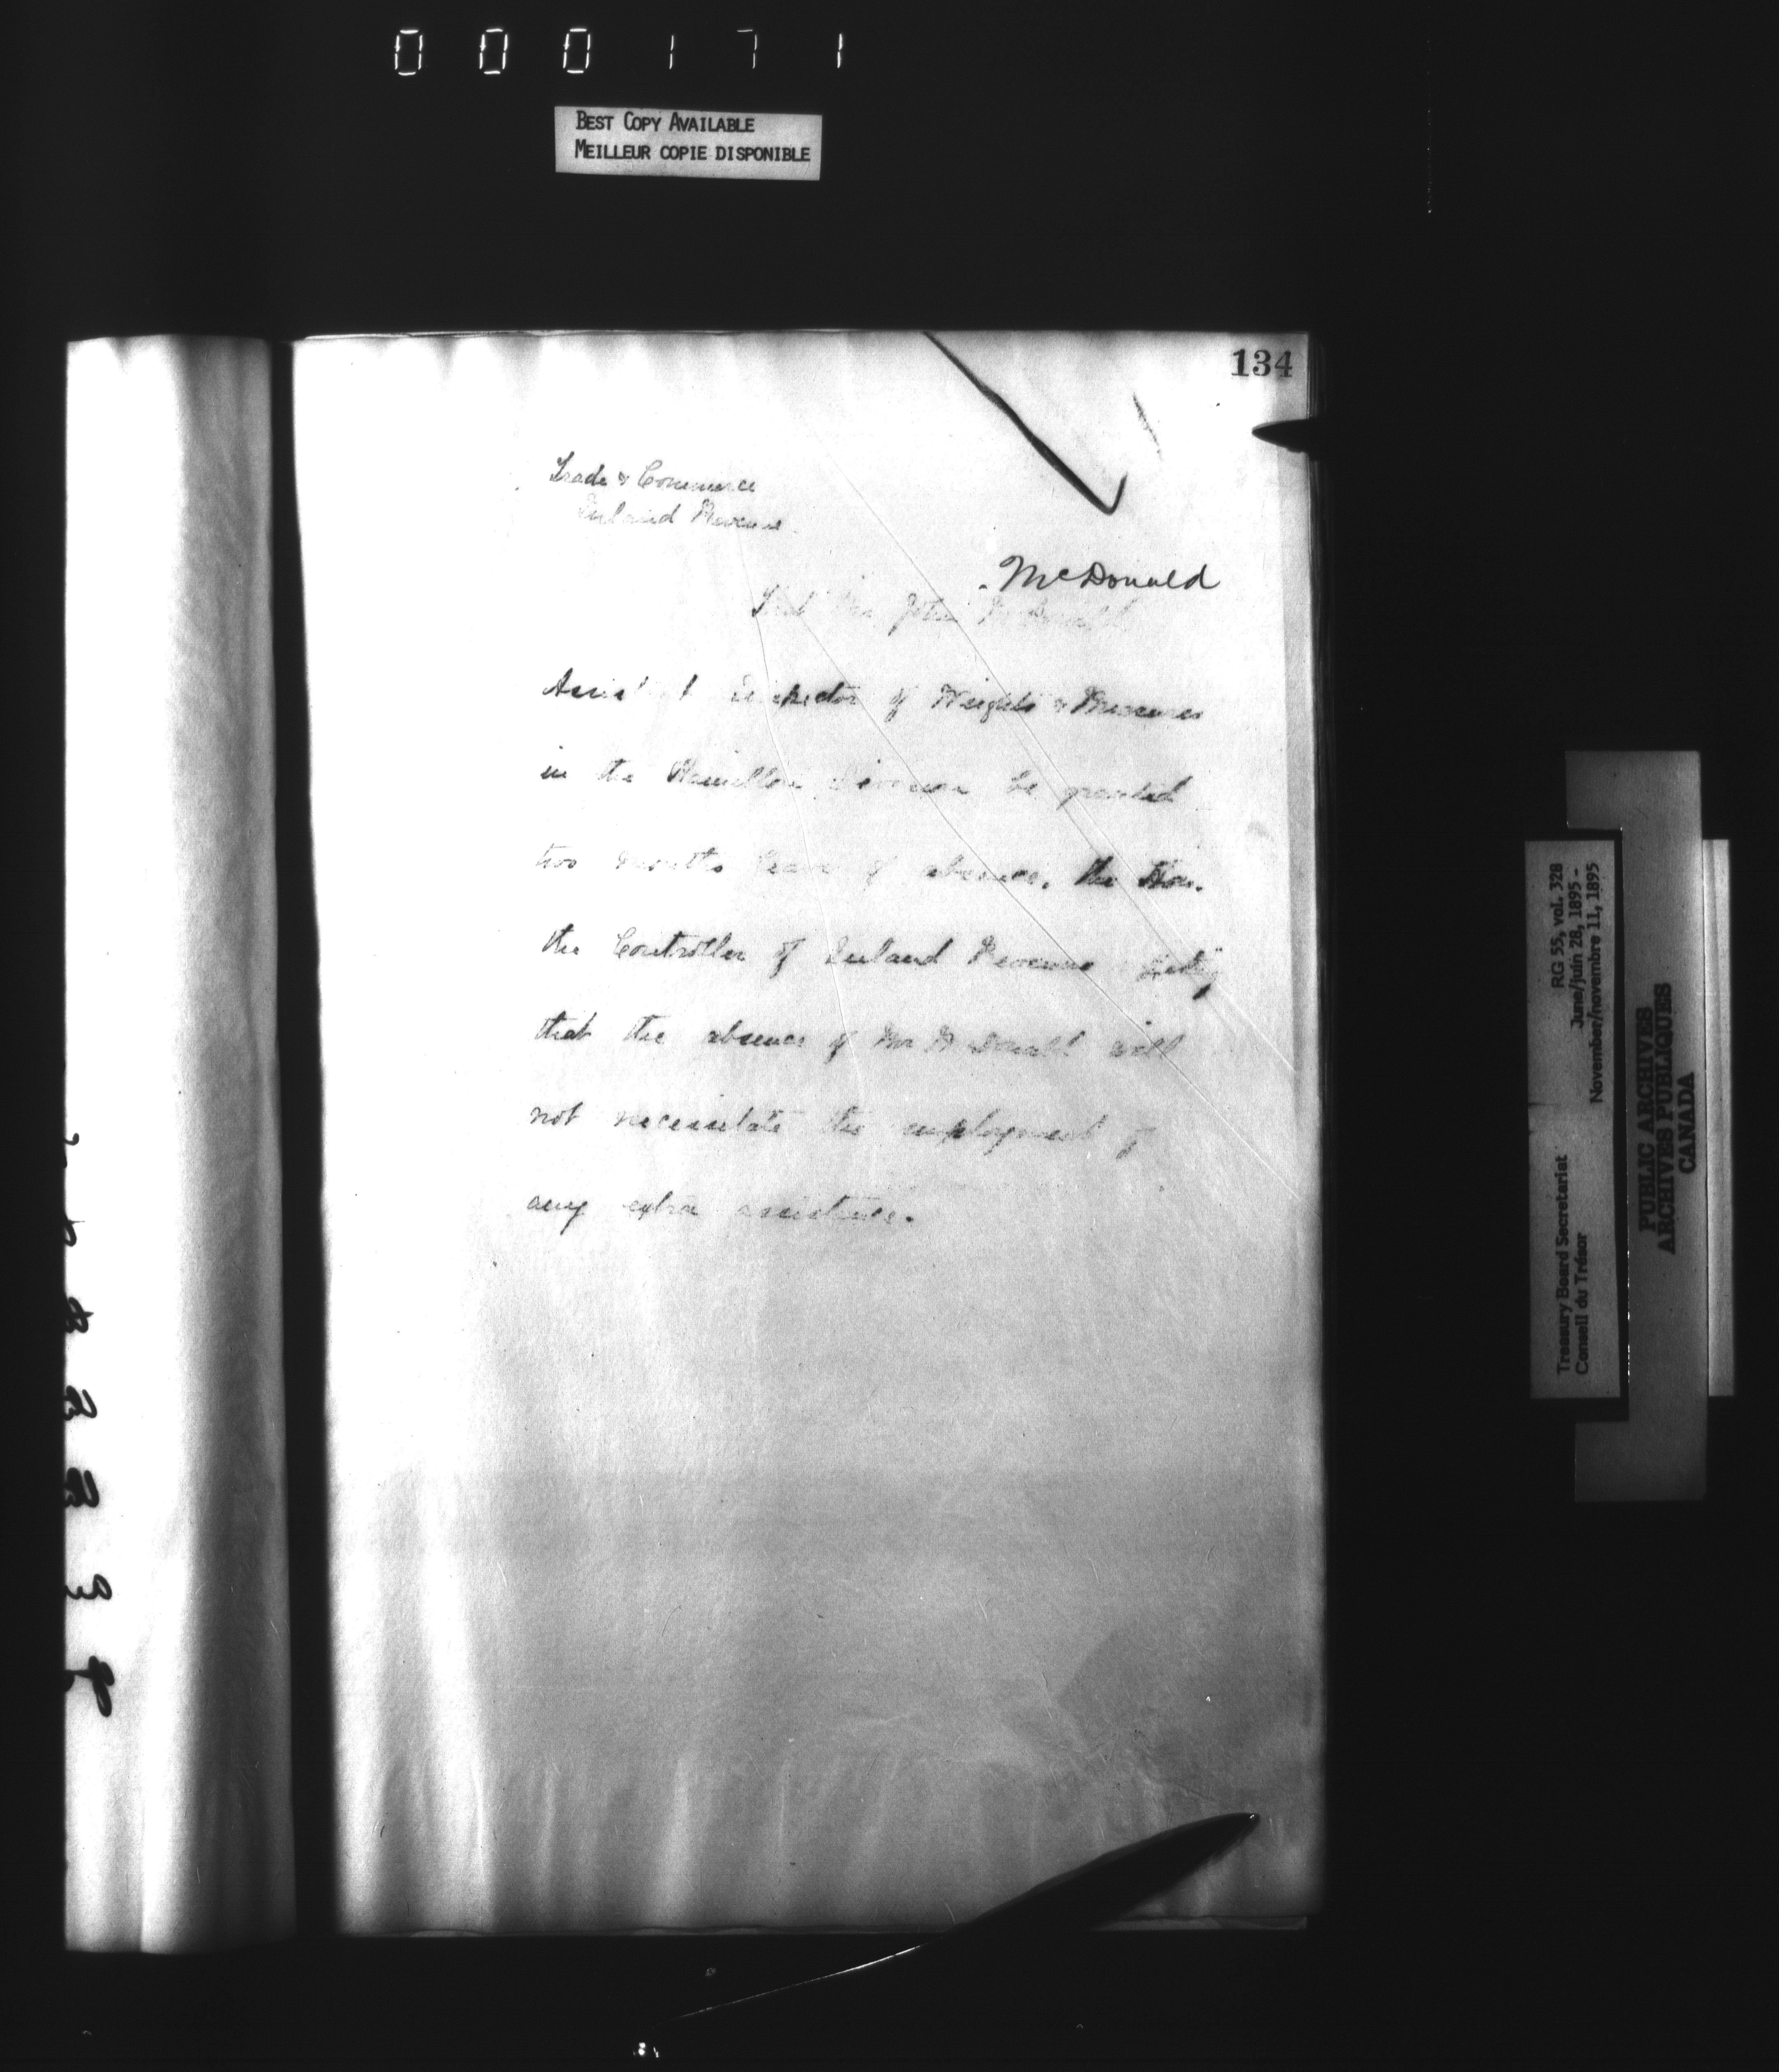 000171
BEST COPY AVAILABLE
MEILLEUR COPIE DISPONIBLE
134
Trade & Commerce
Inland Revenue.
McDonald
That Mr John McDonald
Assistant Inspector of Weights & Measures
in the Hamilton Division be granted
two months leave of absence, the Hon.
the Controller of Inland Revenue
that the absence of Mr McDonald will
not necessitate the employment of
any extra assistance.
RG 55, vol. 328
June/juin 28, 1895 -
November/novembre 11, 1895
Treasury Board Secretariat
Conseil du Trésor
PUBLIC ARCHIVES
ARCHIVES PUBLIQUES
CANADA